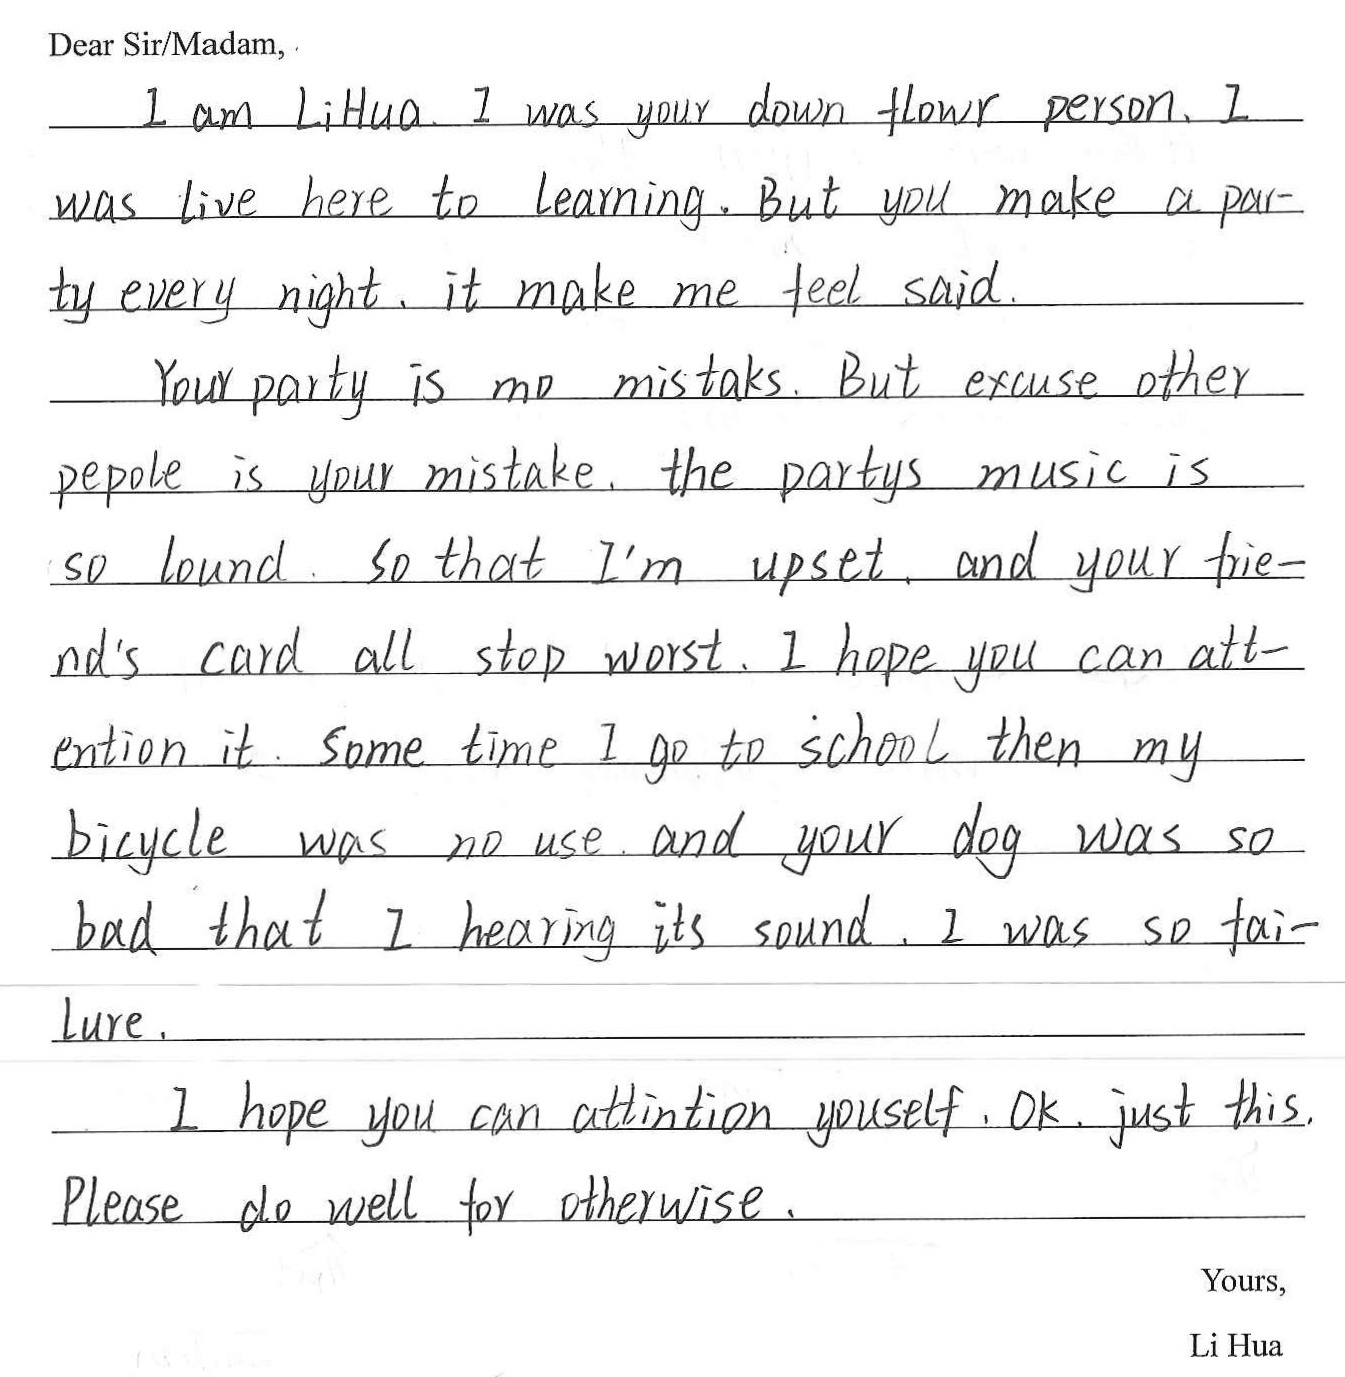 Dear Sir/Madam,
I am LiHua. I was your down flowr person. I
was live here to learning. But you make a par-
ty every night. it make me feel said.
Your party is mo mistaks. But excuse other
pepole is your mistake. the partys music is
so lound. So that I'm upset. and your frie-
nd's card all stop worst. I hope you can att-
ention it. Some time I go to school then my
bicycle was no use. and your dog was so
bad that I hearing its sound. I was so fai-
lure.
I hope you can attintion youself. OK. just this.
Please do well for otherwise.
Yours,
Li Hua